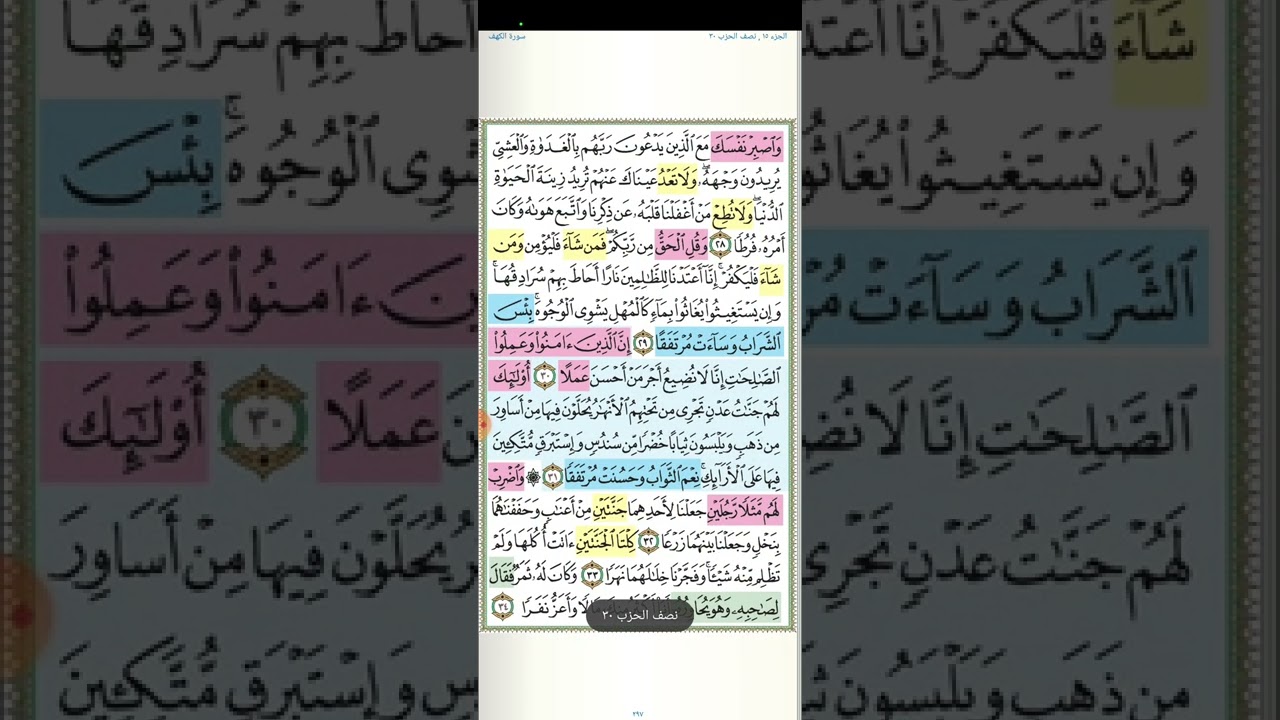 الجزء ١٥ , نصف الحزب ٣٠
سورة الكهف
وَٱصۡبِرۡ نَفۡسَكَ مَعَ ٱلَّذِينَ يَدۡعُونَ رَبَّهُم بِٱلۡغَدَوٰةِ وَٱلۡعَشِيِّ
يُرِيدُونَ وَجۡهَهُۥۖ وَلَا تَعۡدُ عَيۡنَاكَ عَنۡهُمۡ تُرِيدُ زِينَةَ ٱلۡحَيَوٰةِ
ٱلدُّنۡيَاۖ وَلَا تُطِعۡ مَنۡ أَغۡفَلۡنَا قَلۡبَهُۥ عَن ذِكۡرِنَا وَٱتَّبَعَ هَوَىٰهُ وَكَانَ
أَمۡرُهُۥ فُرُطٗا ٢٨ وَقُلِ ٱلۡحَقُّ مِن رَّبِّكُمۡۖ فَمَن شَآءَ فَلۡيُؤۡمِن وَمَن
شَآءَ فَلۡيَكۡفُرۡۚ إِنَّآ أَعۡتَدۡنَا لِلظَّٰلِمِينَ نَارًا أَحَاطَ بِهِمۡ سُرَادِقُهَاۚ
وَإِن يَسۡتَغِيثُواْ يُغَاثُواْ بِمَآءٖ كَٱلۡمُهۡلِ يَشۡوِي ٱلۡوُجُوهَۚ بِئۡسَ
ٱلشَّرَابُ وَسَآءَتۡ مُرۡتَفَقًا ٢٩ إِنَّ ٱلَّذِينَ ءَامَنُواْ وَعَمِلُواْ
ٱلصَّٰلِحَٰتِ إِنَّا لَا نُضِيعُ أَجۡرَ مَنۡ أَحۡسَنَ عَمَلًا ٣٠ أُوْلَٰٓئِكَ
لَهُمۡ جَنَّٰتُ عَدۡنٖ تَجۡرِي مِن تَحۡتِهِمُ ٱلۡأَنۡهَٰرُ يُحَلَّوۡنَ فِيهَا مِنۡ أَسَاوِرَ
مِن ذَهَبٖ وَيَلۡبَسُونَ ثِيَابًا خُضۡرٗا مِّن سُندُسٖ وَإِسۡتَبۡرَقٖ مُّتَّكِـِٔينَ
فِيهَا عَلَى ٱلۡأَرَآئِكِۚ نِعۡمَ ٱلثَّوَابُ وَحَسُنَتۡ مُرۡتَفَقٗا ٣١ ۞ وَٱضۡرِبۡ
لَهُم مَّثَلٗا رَّجُلَيۡنِ جَعَلۡنَا لِأَحَدِهِمَا جَنَّتَيۡنِ مِنۡ أَعۡنَٰبٖ وَحَفَفۡنَٰهُمَا
بِنَخۡلٖ وَجَعَلۡنَا بَيۡنَهُمَا زَرۡعٗا ٣٢ كِلۡتَا ٱلۡجَنَّتَيۡنِ ءَاتَتۡ أُكُلَهَا وَلَمۡ
تَظۡلِم مِّنۡهُ شَيۡـٔٗاۚ وَفَجَّرۡنَا خِلَٰلَهُمَا نَهَرٗا ٣٣ وَكَانَ لَهُۥ ثَمَرٞ فَقَالَ
لِصَٰحِبِهِۦ وَهُوَ يُحَاوِرُهُۥٓ مَالٗا وَأَعَزُّ نَفَرٗا ٣٤
نصف الحزب ٣٠
٢٩٧